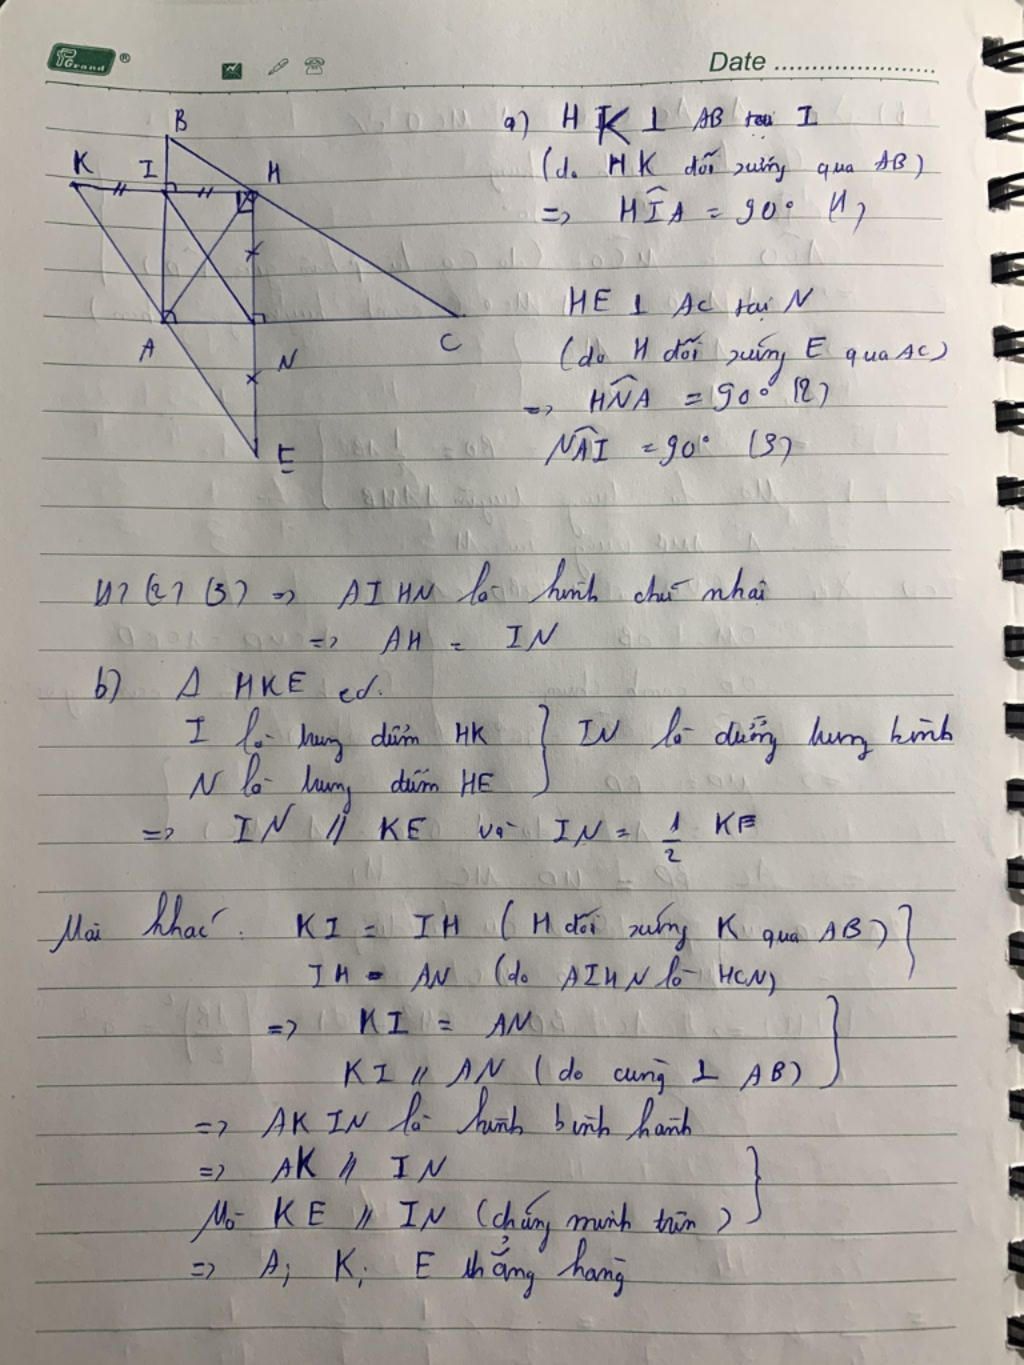 Grand®
Date
B
K I H
A N C
E
a) HK ⊥ AB tại I
(do HK đối xứng qua AB)
=> HÎA = 90° (1)
HE ⊥ AC tại N
(do H đối xứng E qua AC)
=> HN̂A = 90° (2)
NÂI = 90° (3)
(1) (2) (3) => AIHN là hình chữ nhật
=> AH = IN
b) Δ HKE có.
I là trung điểm HK } IN là đường trung bình
N là trung điểm HE
=> IN // KE và IN = 1/2 KE
Mặt khác: KI = IH (H đối xứng K qua AB) }
IH = AN (do AIHN là HCN)
=> KI = AN }
KI // AN (do cùng ⊥ AB)
=> AKIN là hình bình hành
=> AK // IN }
Mà KE // IN (chứng minh trên)
=> A; K; E thẳng hàng